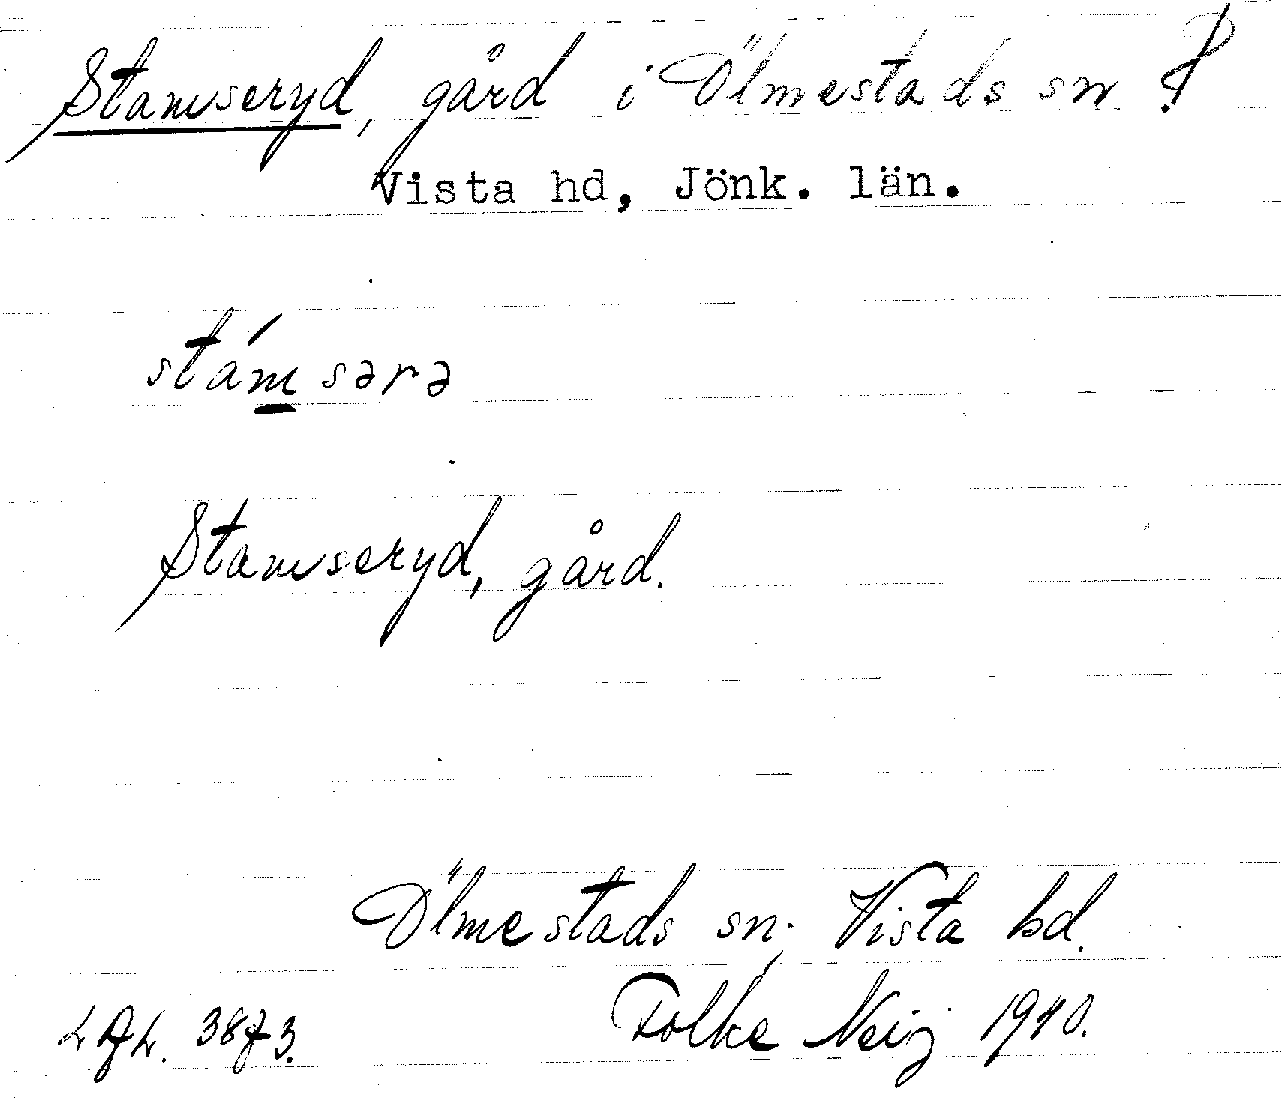 Stamseryd, gård i Ölmestads sn
Vista hd, Jönk. län.
stám̲səra
Stamseryd, gård.
Ölmestads sn; Vista hd.
Folke Neij 1940.
3873.